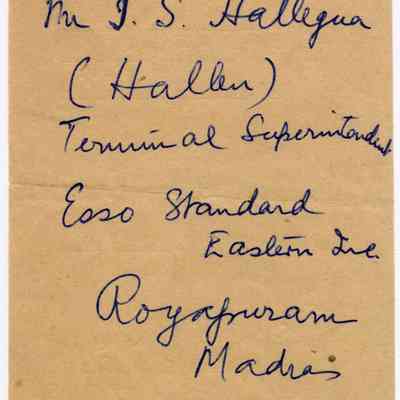 Mr I. S. Hallegua
(Hallen)
Terminal Superintendent
Esso Standard
Eastern Inc.
Royapuram
Madras